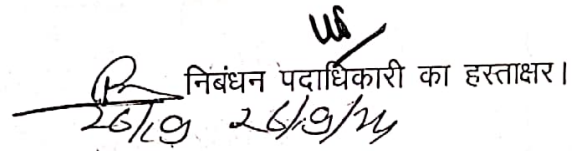 निबंधन पदाधिकारी का हस्ताक्षर।
26/9 26/9/24